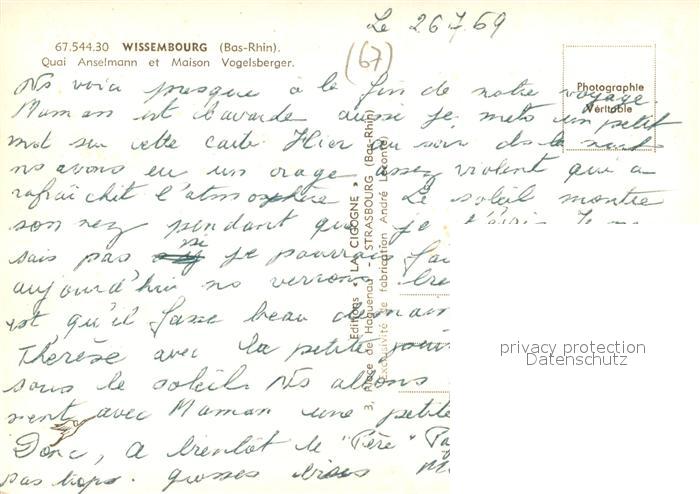 Le 26 7 69
67.544.30 WISSEMBOURG (Bas-Rhin).
Quai Anselmann et Maison Vogelsberger.
(67)
Photographie
Véritable
Ns voici presque à la fin de notre voyage.
Maman est bavarde aussi je mets un petit
mot sur cette carte. Hier au soir ds la nuit
ns avons eu un orage assez violent qui a
rafraîchit l'atmosphère. Le soleil montre
son nez pendant que je t'écris. Je ne
sais pas si je pourrai
aujourd'hui ns verrons
est qu'il fasse beau demain
Thérèse avec la petite
sous le soleil. Ns allons
avec Maman une petite
Donc, à bientôt le "Père"
pas trop. grosses bises
Editions « LA CIGOGNE »
3, Place de Haguenau - STRASBOURG (Bas-Rhin)
Exclusivité de fabrication André Leconte
privacy protection
Datenschutz